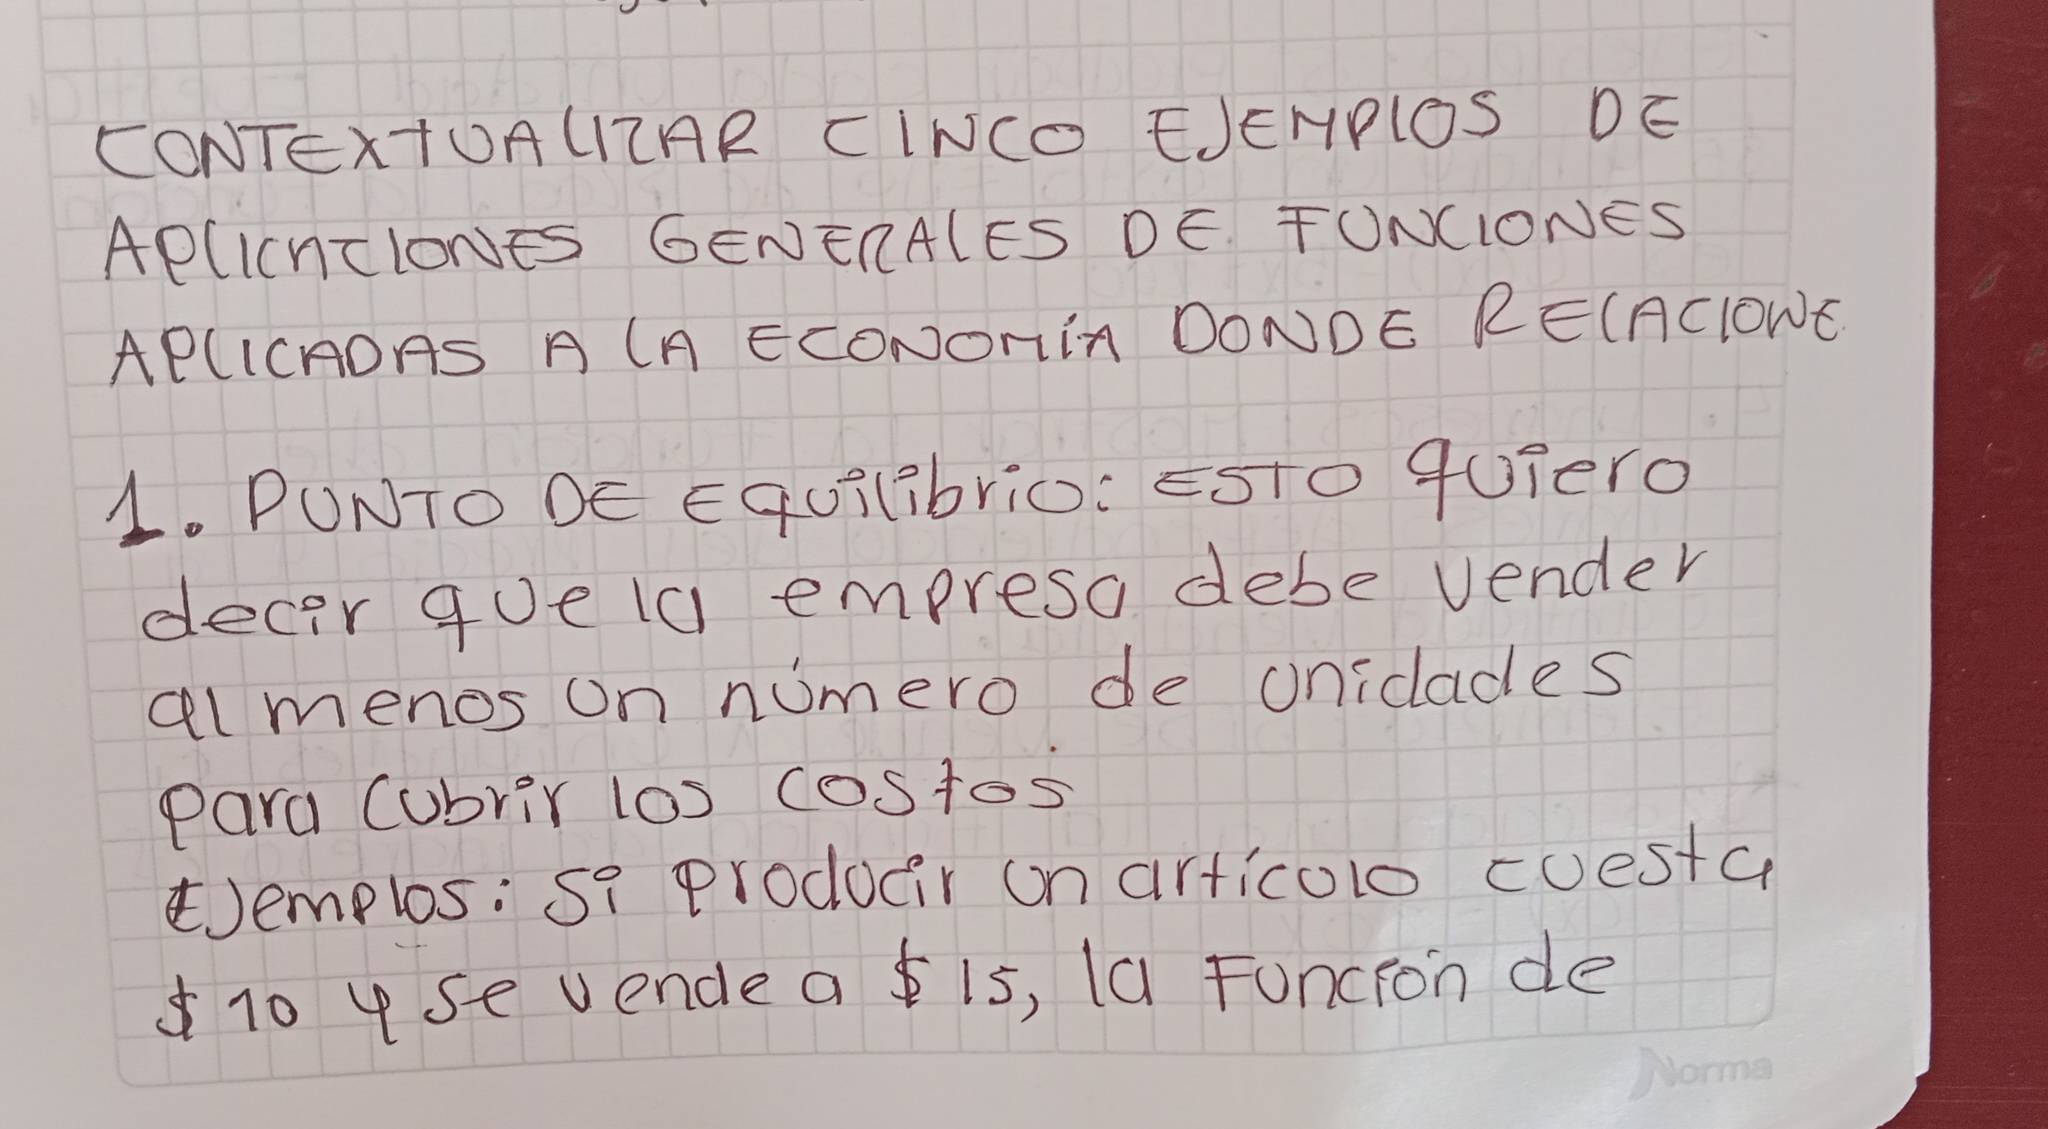 CONTEXTUALIZAR CINCO EJEMPLOS DE
APLICACIONES GENERALES DE FUNCIONES
APLICADAS A LA ECONOMÍA DONDE RELACIONE
1. PUNTO DE EQuilibrio: ESTO quiero
decir que la empresa debe vender
al menos un número de unidades
para cubrir los costos
Ejemplos: Si producir un artículo cuesta
$ 10 y se vende a $ 15, la Función de
Norma